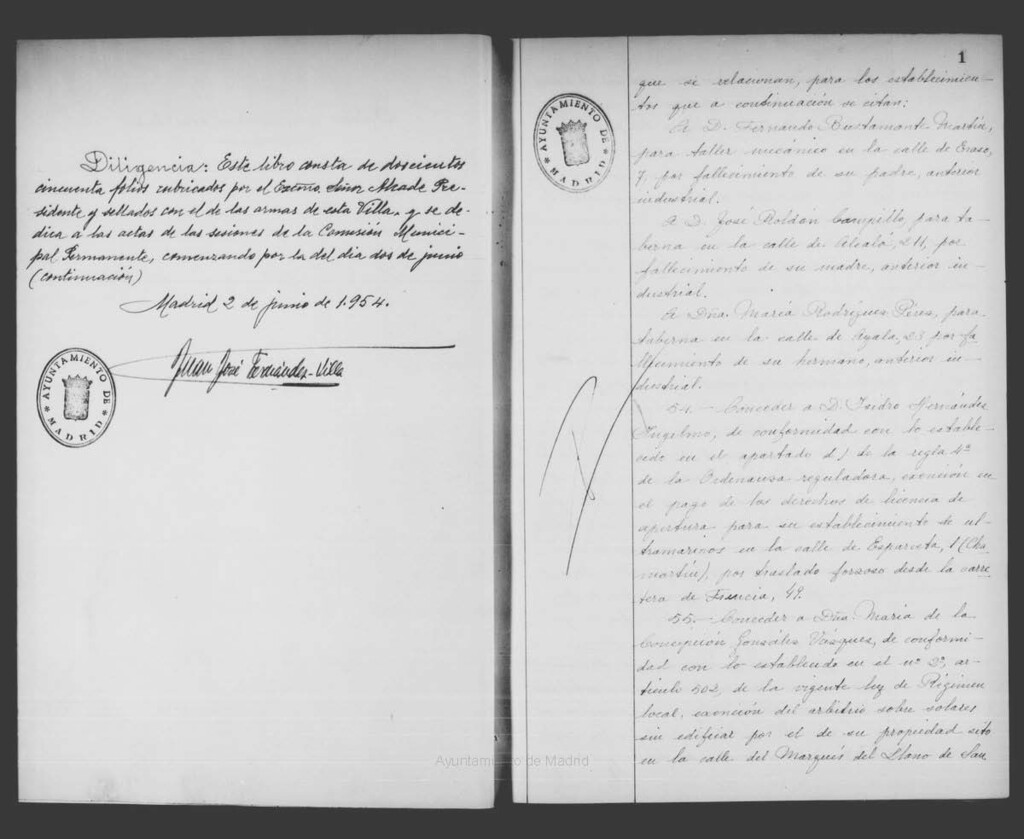 Diligencia: Este libro consta de doscientos
cincuenta folios rubricados por el Excmo. Señor Alcalde Pre-
sidente y sellados con el de las armas de esta Villa, y se de-
dica a las actas de las sesiones de la Comisión Munici-
pal Permanente, comenzando por la del día dos de junio
(continuación)
Madrid 2 de junio de 1.954.
Juan José Fernández-Villa
AYUNTAMIENTO DE MADRID
1
AYUNTAMIENTO DE MADRID
que se relacionan, para los establecimien-
tos que a continuación se citan:
A D. Fernando Bustamante Martín,
para taller mecánico en la calle de Eraso,
7, por fallecimiento de su padre, anterior
industrial.
A D. José Roldán Campillo, para ta-
berna en la calle de Alcalá, 211, por
fallecimiento de su madre, anterior in-
dustrial.
A Dña. María Rodríguez Pérez, para
taberna en la calle de Ayala, 23 por fa-
llecimiento de su hermano, anterior in-
dustrial.
54.- Conceder a D. Isidro Hernández
de conformidad con lo estable-
cido en el apartado d) de la regla 4ª
de la Ordenanza reguladora, exención en
el pago de los derechos de licencia de
apertura para su establecimiento de ul-
tramarinos en la calle de 1 (Cha-
martín), por traslado forzoso desde la carre-
tera de Francia, 49.
55.- Conceder a Dña. María de la
Concepción González Vázquez, de conformi-
dad con lo establecido en el nº 3º, ar-
tículo 502, de la vigente ley de Régimen
local, exención del arbitrio sobre solares
sin edificar por el de su propiedad sito
en la calle del Marqués del Llano de San
Ayuntamiento de Madrid